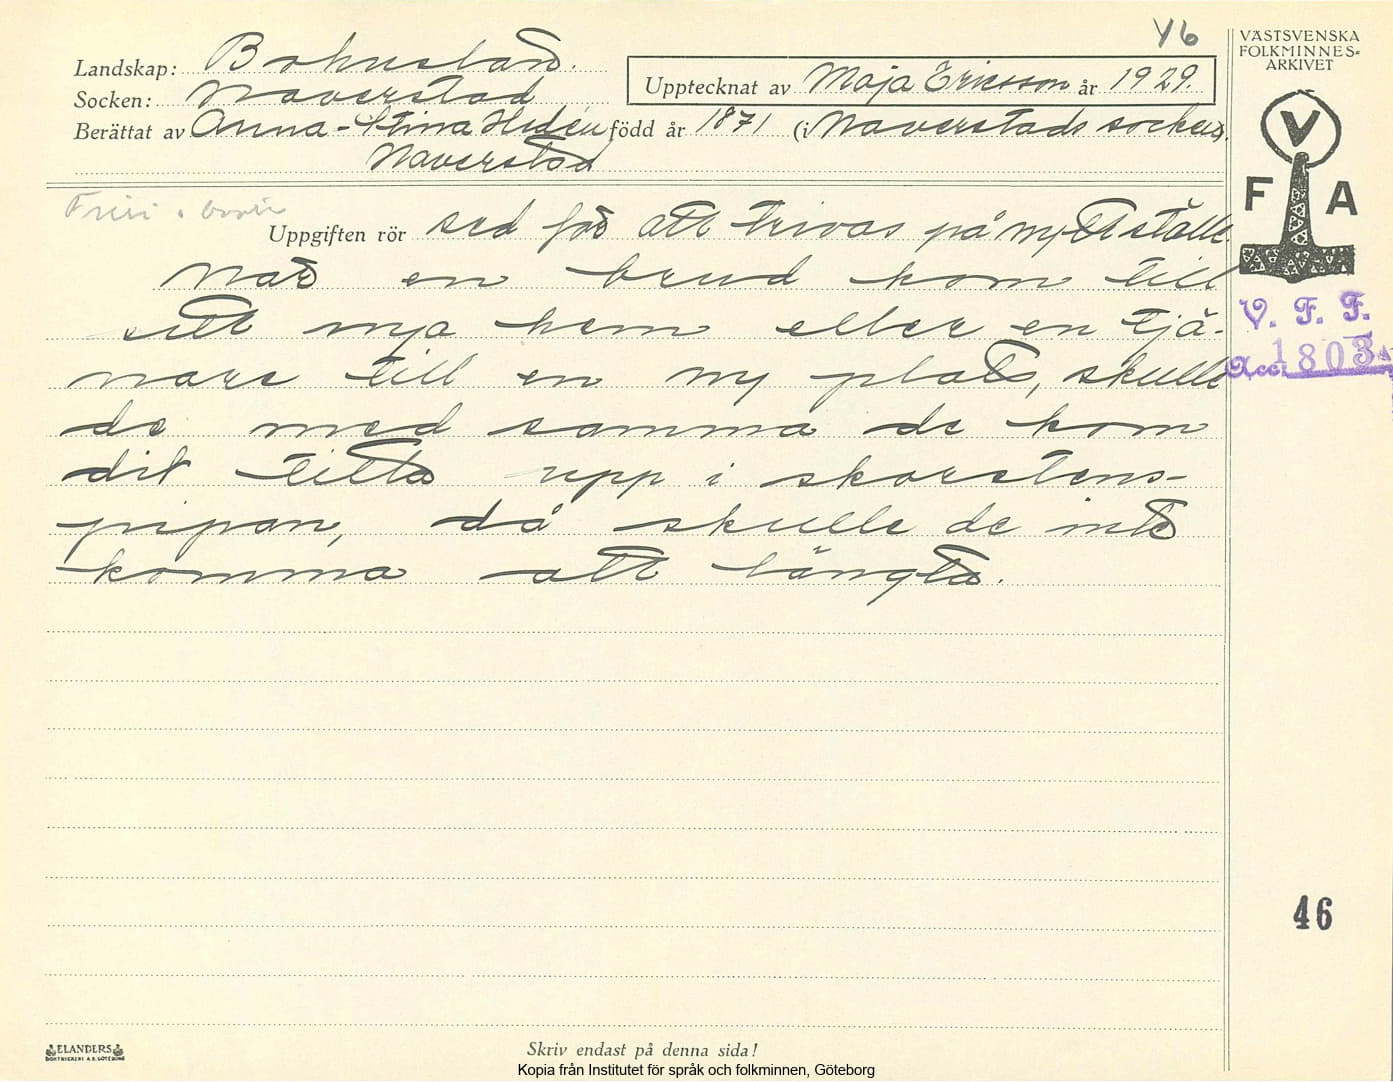 46
VÄSTSVENSKA
FOLKMINNES-
ARKIVET
Landskap: Bohuslän.
Socken: Naverstad
Upptecknat av Maja Ericsson år 1929.
Berättat av Anna-Stina Hedén född år 1871 (i Naverstads socken).
Naverstad
V
F A
Uppgiften rör sed för att trivas på nytt ställe.
När en brud kom till
sitt nya hem eller en tjä-
nare till en ny plats, skulle
de med samma de kom
dit titta upp i skorstens-
pipan, då skulle de inte
komma att längta.
V. F. F.
Acc. 1803
46
ELANDERS
BOKTRYCKERI A.B. GÖTEBORG
Skriv endast på denna sida!
Kopia från Institutet för språk och folkminnen, Göteborg